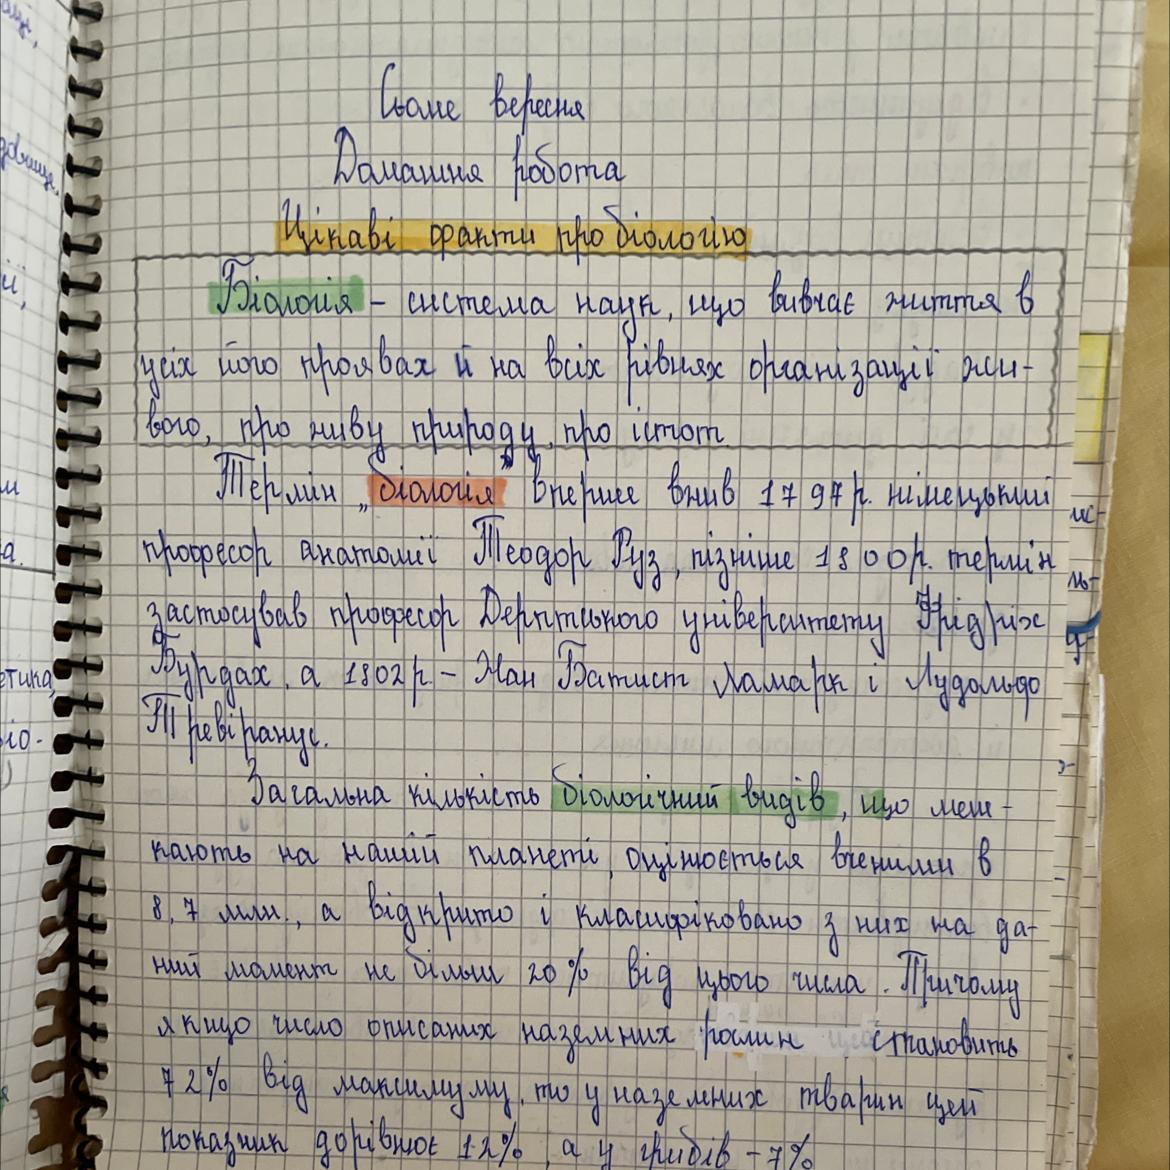 Сьоме вересня
Домашня робота
Цікаві факти про біологію
Біологія – система наук, що вивчає життя в
усіх його проявах й на всіх рівнях організації жи-
вого, про живу природу, про істот.
Термін „біологія” вперше вжив 1797р. німецький
професор анатомії Теодор Руз, пізніше 1800р. термін
застосував професор Дерптського університету Фрідріх
Бурдах, а 1802р – Жан Батист Ламарк і Лудольф
Тревіранус.
Загальна кількість біологічний видів, що меш-
кають на нашій планеті, оцінюється вченими в
8,7 млн., а відкрито і класифіковано з них на да-
ний момент не більш 20% від цього числа. Причому
якщо число описаних наземних рослин становить
72% від максимуму, то у наземних тварин цей
показник дорівнює 12%, а у грибів – 7%